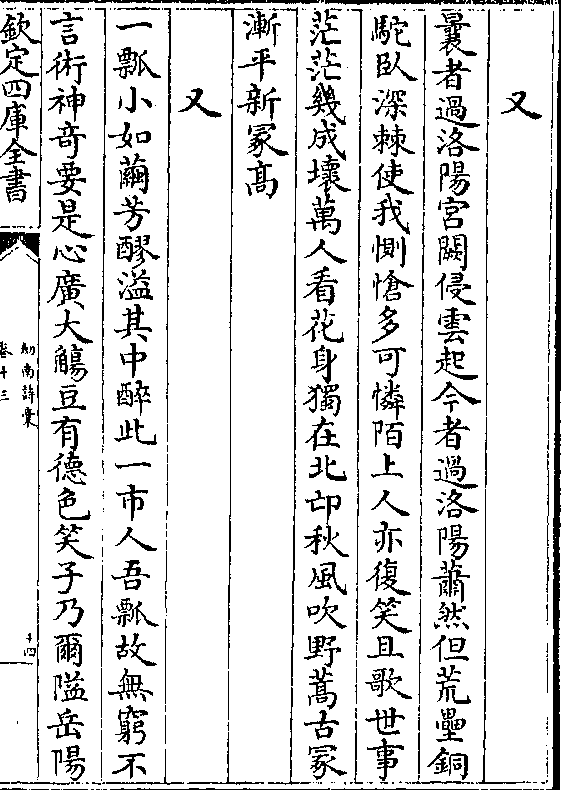 又
曩者過洛陽宮闕侵雲起今者過洛陽蕭然但荒壘銅
駝臥深棘使我惻愴多可憐陌上人亦復笑且歌世事
茫茫幾成壞萬人看花身獨在北邙秋風吹野蒿古冢
漸平新冢高
又
一瓢小如繭芳醪溢其中醉此一市人吾瓢故無窮不
言術神奇要是心廣大觴豆有德色笑子乃爾隘岳陽
欽定四庫全書
劍南詩稾
卷十三
十四